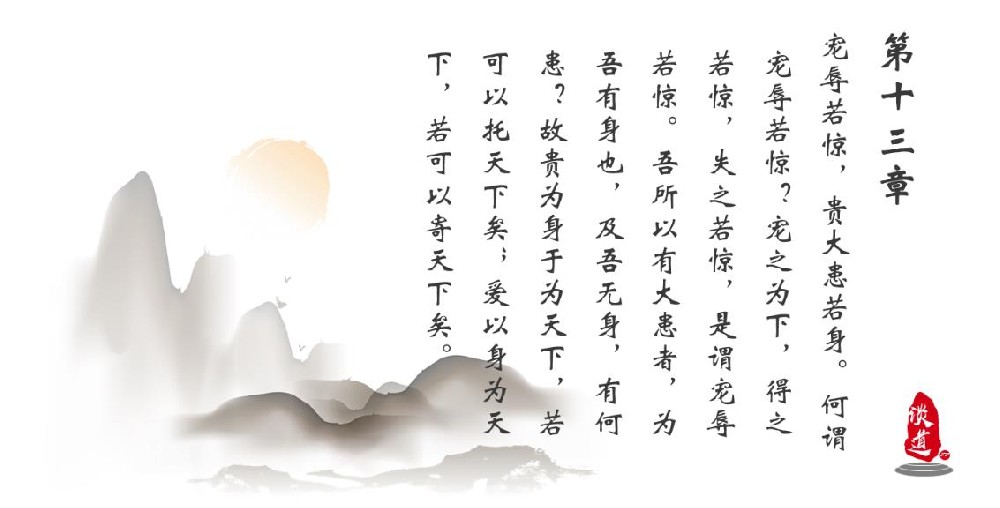 第十三章
宠辱若惊，贵大患若身。何谓
宠辱若惊？宠之为下，得之
若惊，失之若惊，是谓宠辱
若惊。吾所以有大患者，为
吾有身也，及吾无身，有何
患？故贵为身于为天下，若
可以托天下矣；爱以身为天
下，若可以寄天下矣。
谈道